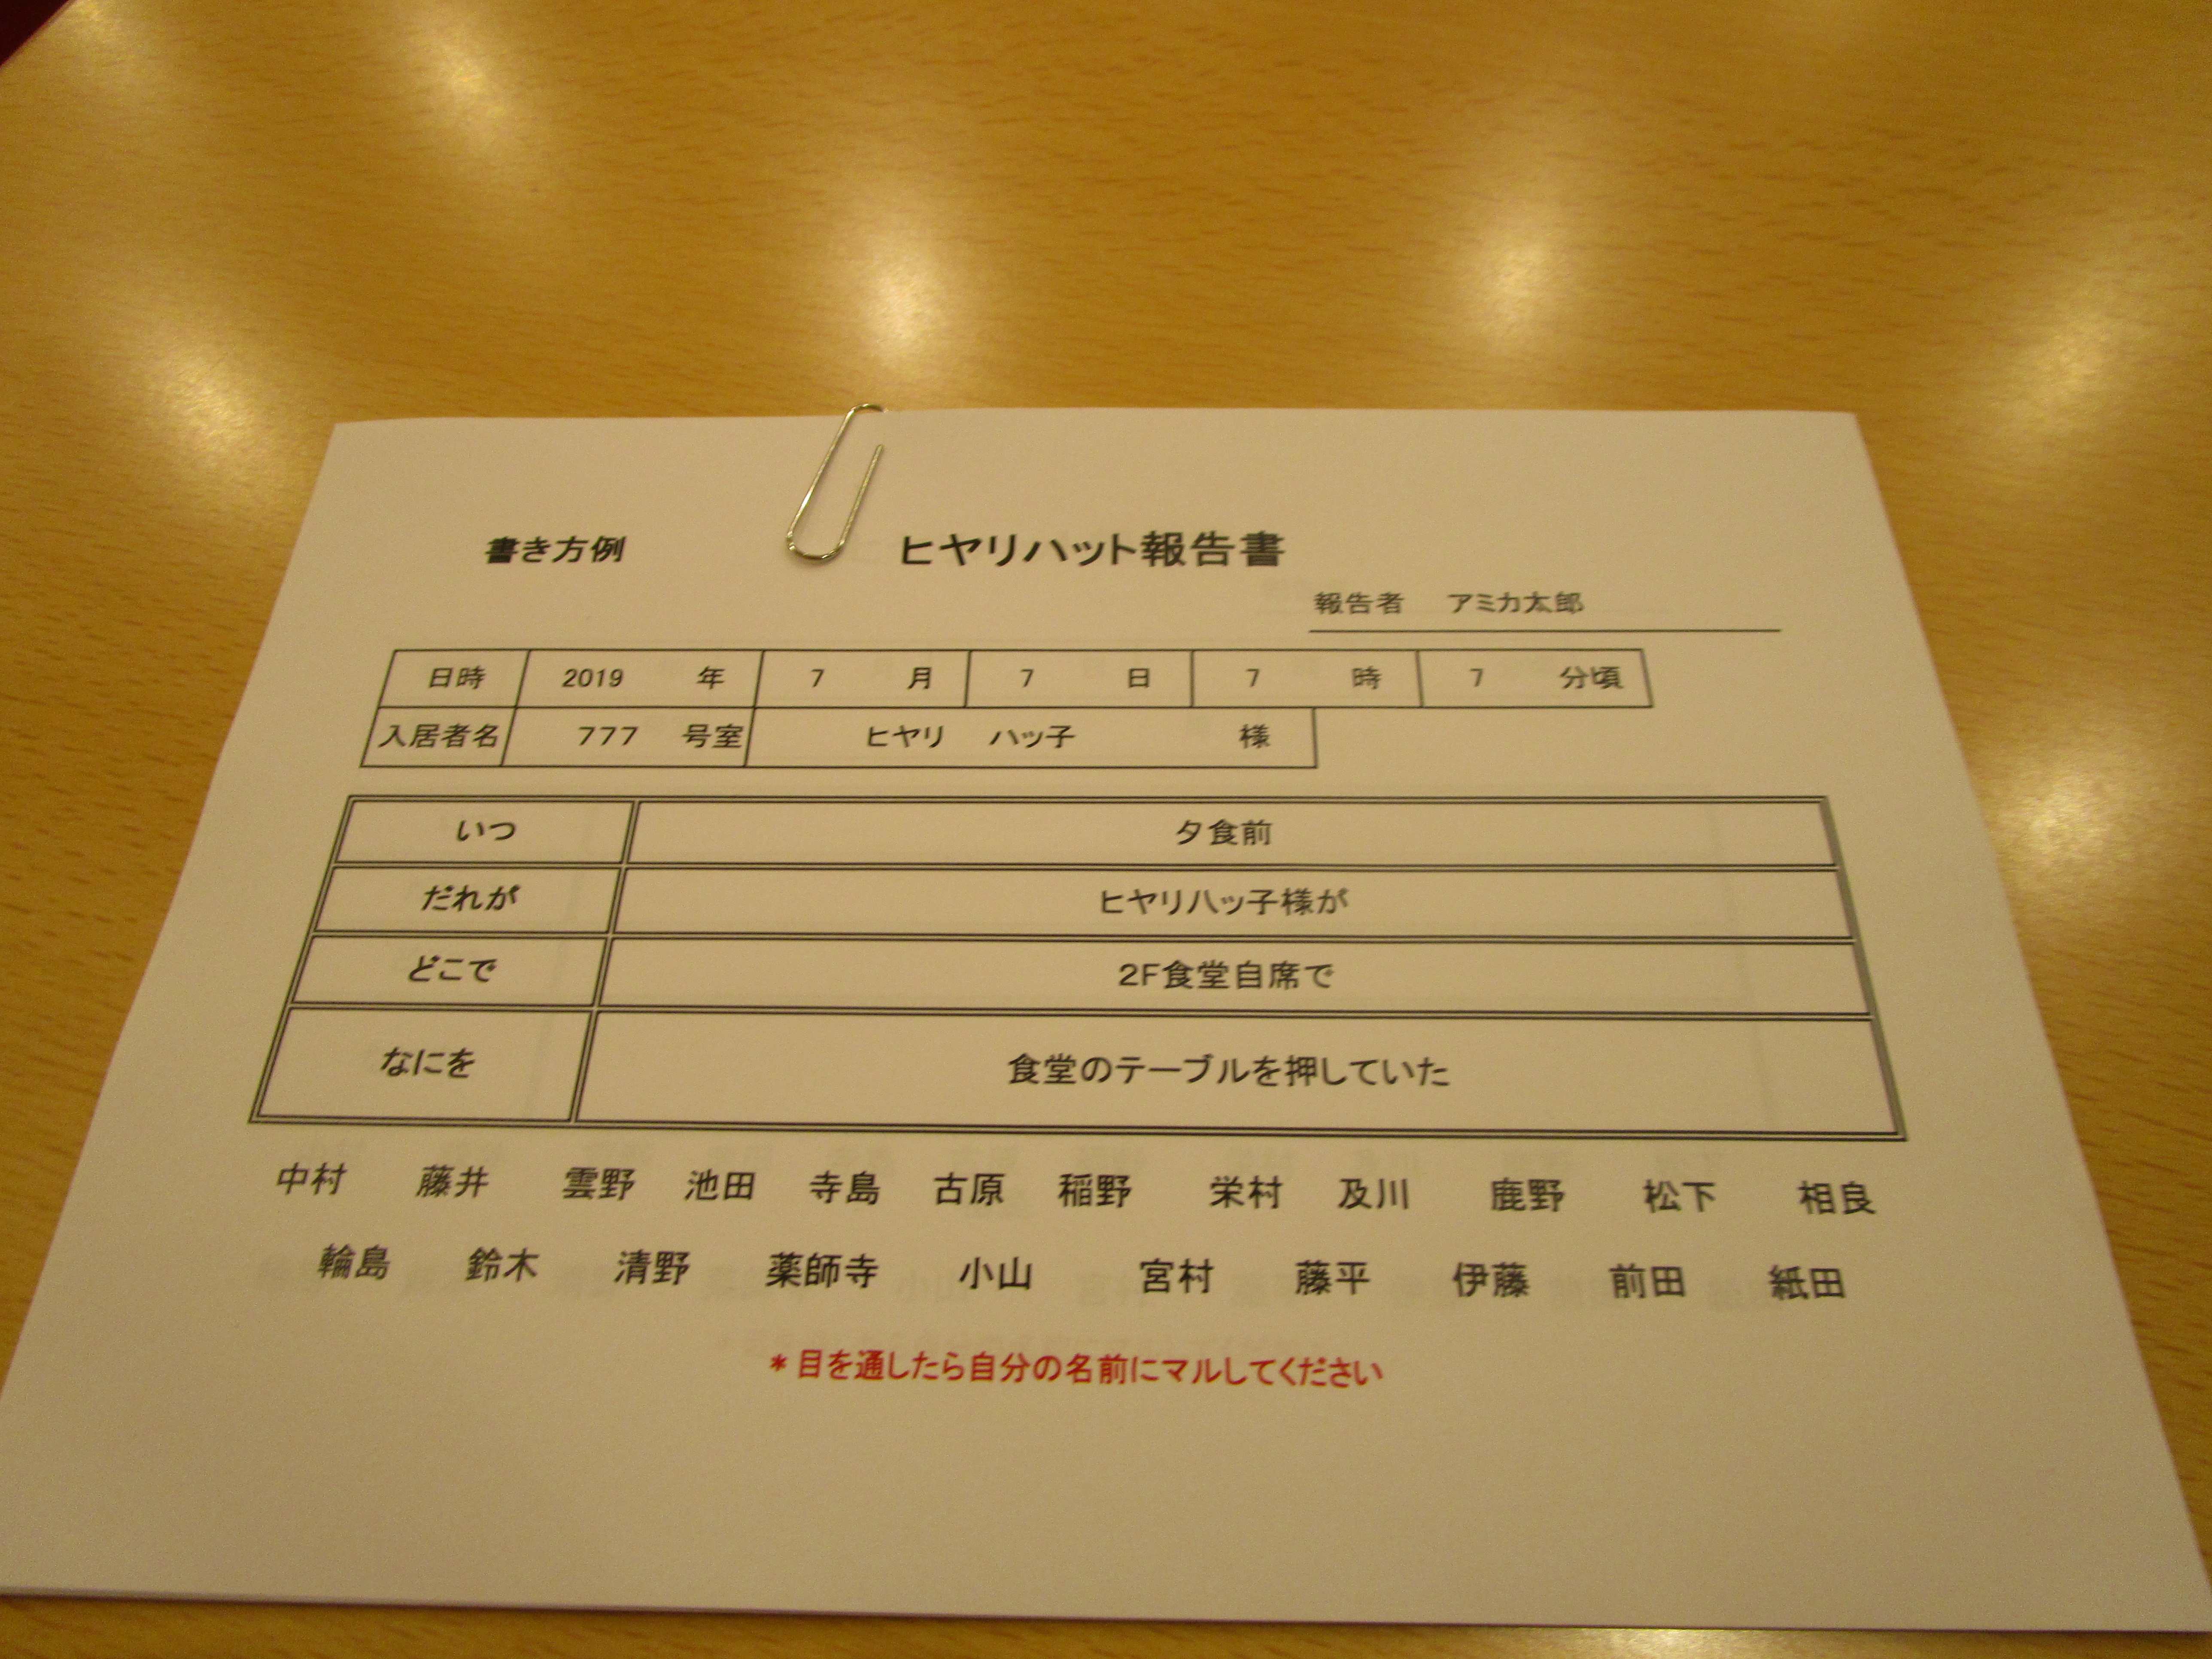 書き方例 ヒヤリハット報告書
報告者 アミカ太郎
日時 2019 年 7 月 7 日 7 時 7 分頃
入居者名 777 号室 ヒヤリ ハッ子 様
いつ 夕食前
だれが ヒヤリハッ子様が
どこで 2F食堂自席で
なにを 食堂のテーブルを押していた
中村 藤井 雲野 池田 寺島 古原 稲野 栄村 及川 鹿野 松下 相良
輪島 鈴木 清野 薬師寺 小山 宮村 藤平 伊藤 前田 紙田
*目を通したら自分の名前にマルしてください